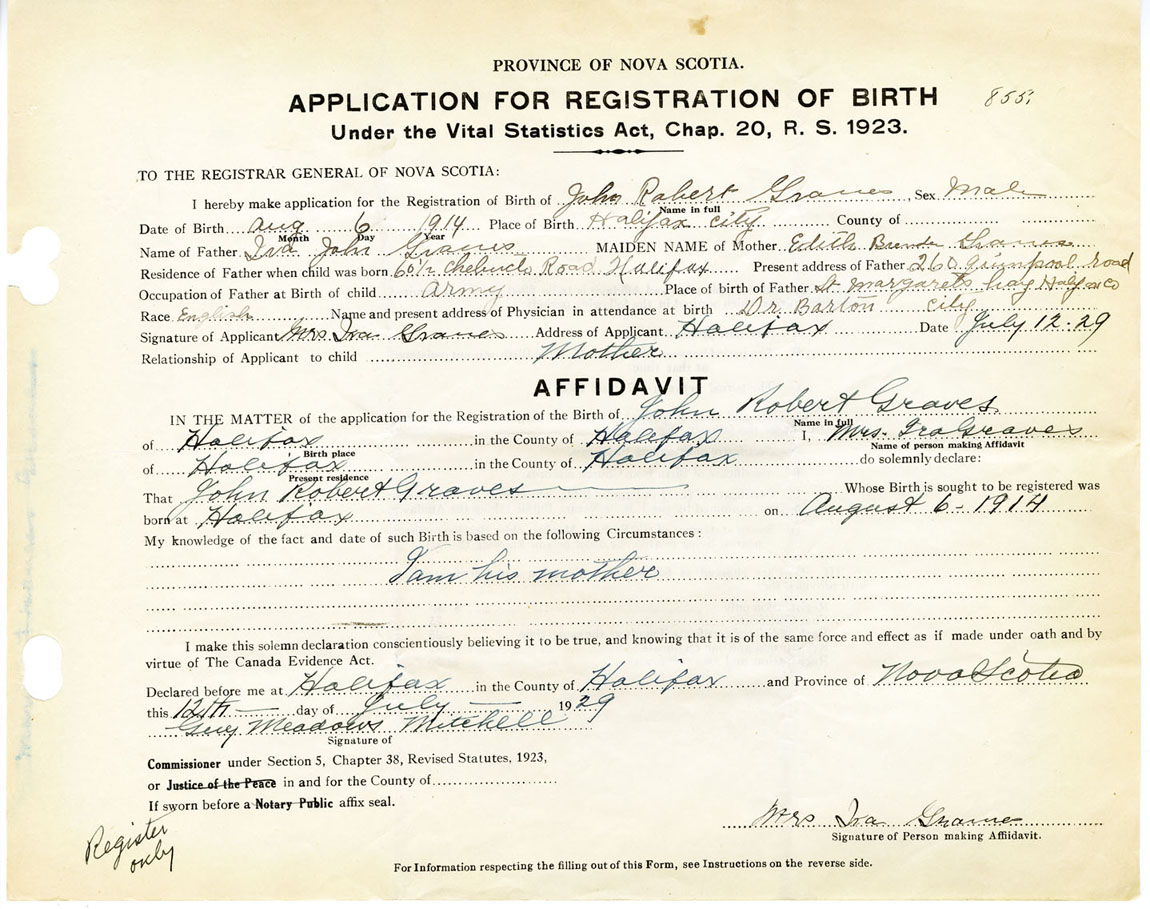 PROVINCE OF NOVA SCOTIA.
APPLICATION FOR REGISTRATION OF BIRTH 855
Under the Vital Statistics Act, Chap. 20, R. S. 1923.
TO THE REGISTRAR GENERAL OF NOVA SCOTIA:
I hereby make application for the Registration of Birth of John Robert Graves, Sex Male
Name in full
Date of Birth Aug 6 1914 Place of Birth Halifax city County of
Month Day Year
Name of Father Ira John Graves MAIDEN NAME of Mother Edith Graves
Residence of Father when child was born 60½ Chebucto Road Halifax Present address of Father 260 road
Occupation of Father at Birth of child Army Place of birth of Father St Margarets bay Halifax Co
Race English Name and present address of Physician in attendance at birth Dr Barton city
Signature of Applicant Mrs Ira Graves Address of Applicant Halifax Date July 12-29
Relationship of Applicant to child Mother
AFFIDAVIT
IN THE MATTER of the application for the Registration of the Birth of John Robert Graves
Name in full
of Halifax in the County of Halifax I, Mrs. Ira Graves
Birth place Name of person making Affidavit
of Halifax in the County of Halifax do solemnly declare:
Present residence
That John Robert Graves Whose Birth is sought to be registered was
born at Halifax on August 6 - 1914
My knowledge of the fact and date of such Birth is based on the following Circumstances:
I am his mother
I make this solemn declaration conscientiously believing it to be true, and knowing that it is of the same force and effect as if made under oath and by
virtue of The Canada Evidence Act.
Declared before me at Halifax in the County of Halifax and Province of Nova Scotia
this 12th day of July 1929
Guy Meadows Mitchell
Signature of
Commissioner under Section 5, Chapter 38, Revised Statutes, 1923,
or Justice of the Peace in and for the County of
If sworn before a Notary Public affix seal.
Mrs Ira Graves
Signature of Person making Affidavit.
Register
only
For Information respecting the filling out of this Form, see Instructions on the reverse side.